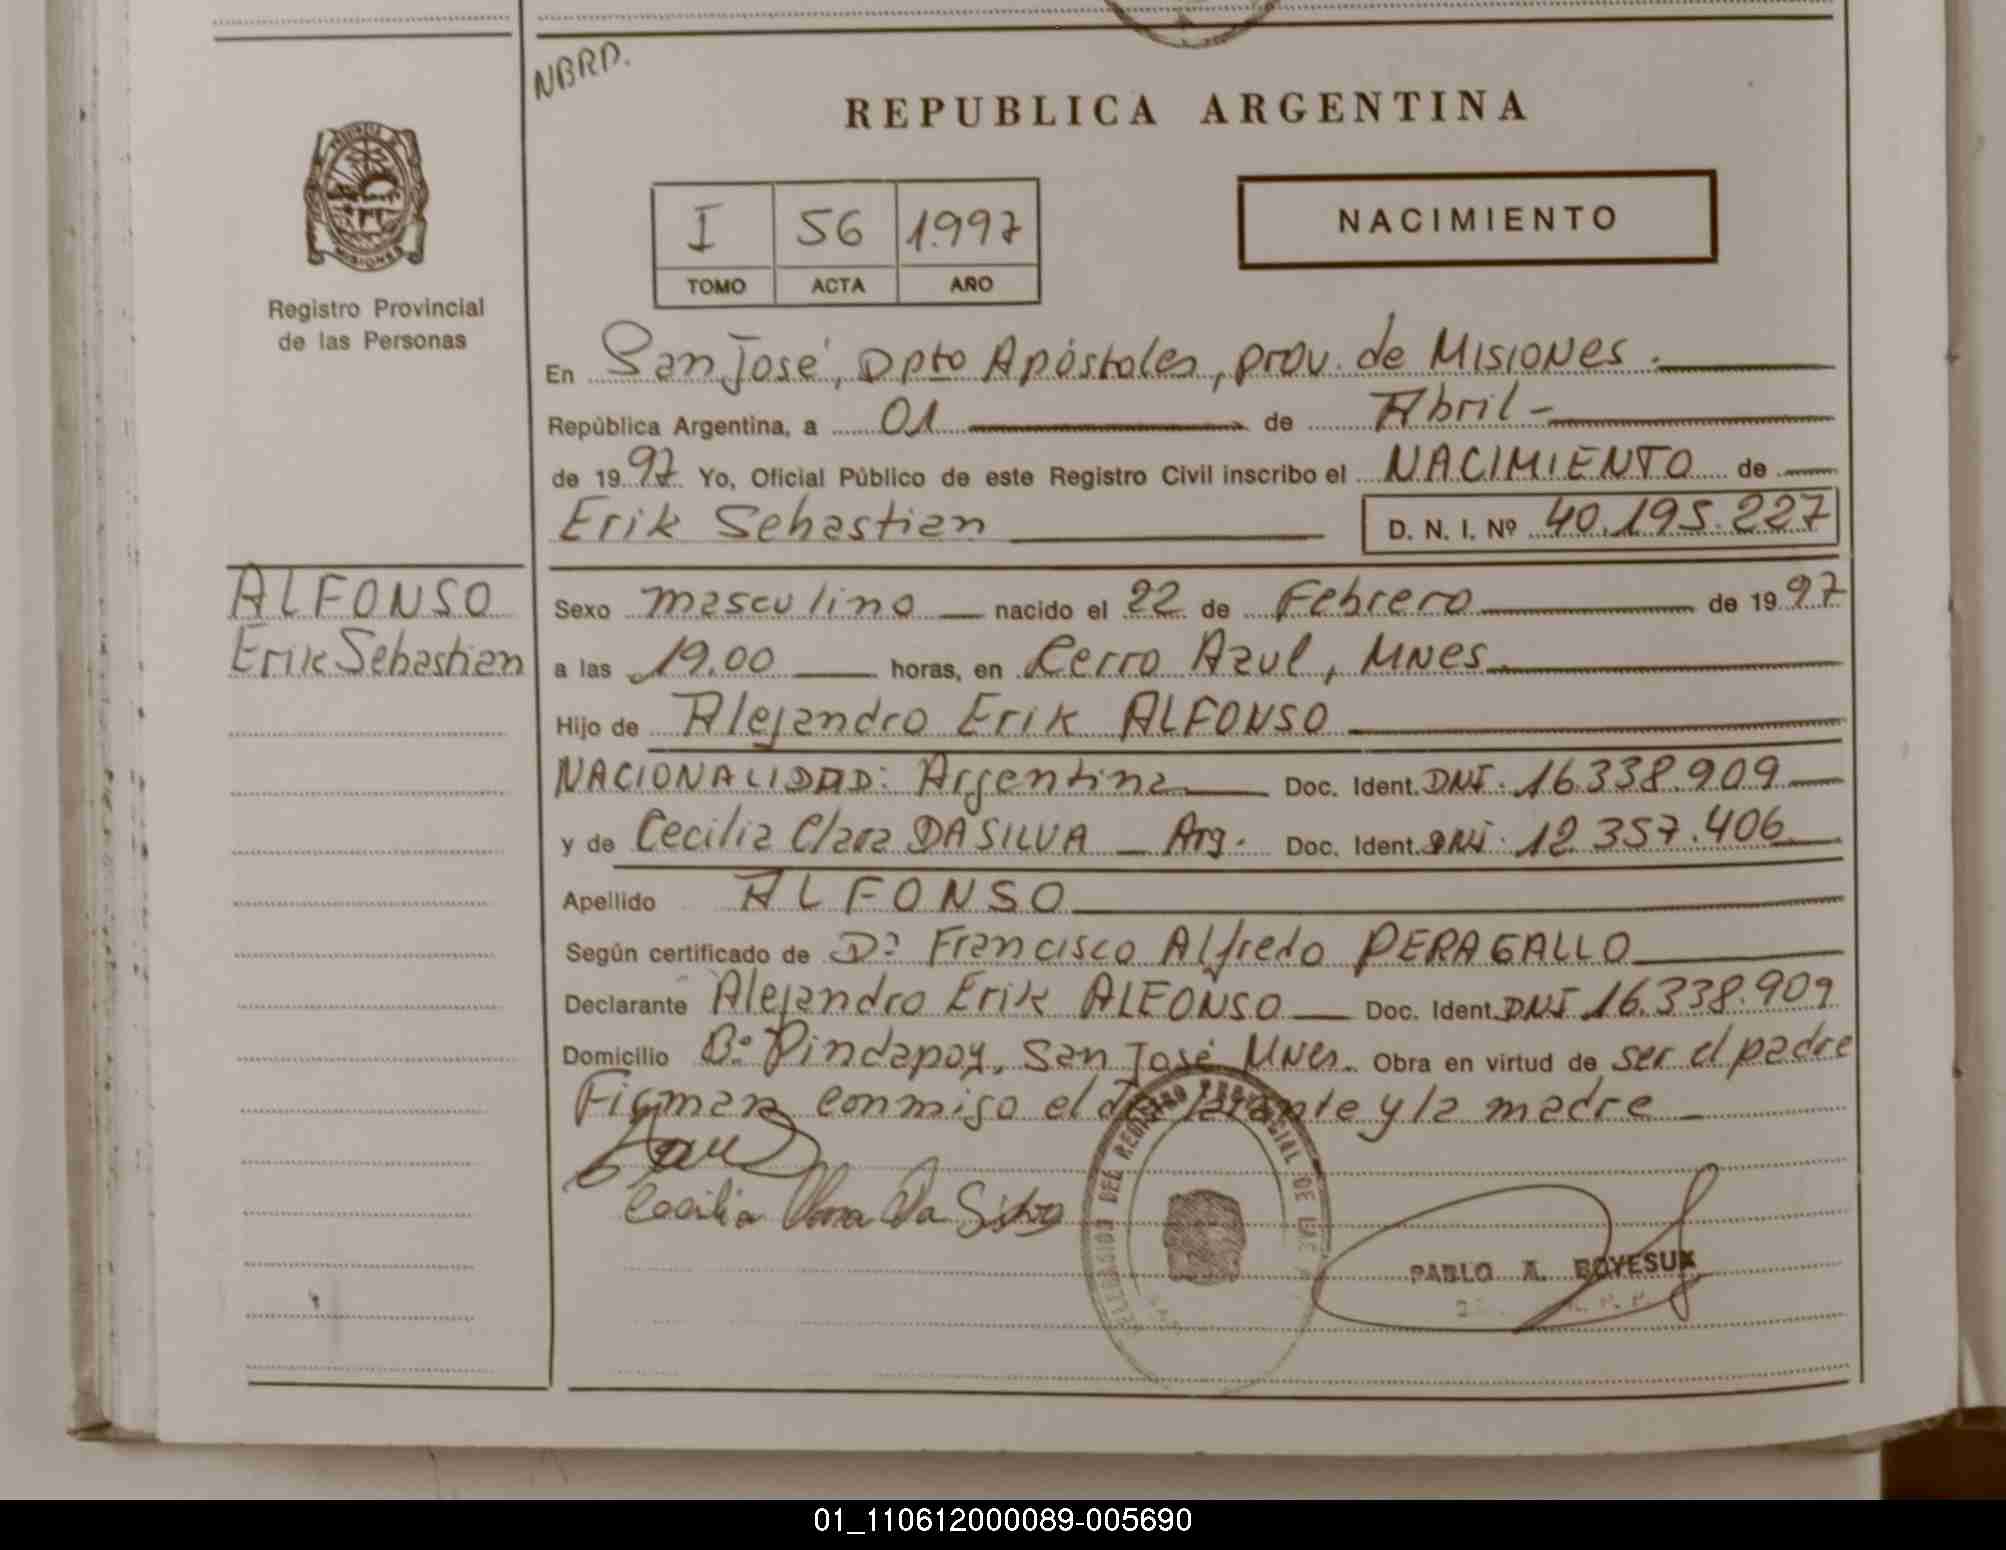 NBRD.
REPUBLICA ARGENTINA
I 56 1.997
TOMO ACTA AÑO
NACIMIENTO
MISIONES
Registro Provincial
de las Personas
En San José, Dpto Apóstoles, prov. de MISIONES.
República Argentina, a 01 de Abril -
de 1997 Yo, Oficial Público de este Registro Civil inscribo el NACIMIENTO de
Erik Sebastian D. N. I. Nº 40.195.227
ALFONSO
Erik Sebastian
Sexo masculino nacido el 22 de Febrero de 1997
a las 19.00 horas, en Cerro Azul, MNES
Hijo de Alejandro Erik ALFONSO
NACIONALIDAD: Argentina Doc. Ident. DNI. 16.338.909
y de Cecilia Clara DA SILVA Arg. Doc. Ident. DNI. 12.357.406
Apellido ALFONSO
Según certificado de Dº Francisco Alfredo PERAGALLO
Declarante Alejandro Erik ALFONSO Doc. Ident. DNI 16.338.909
Domicilio Bº Pindapoy, San José Mnes. Obra en virtud de ser el padre
Firman conmigo el declarante y la madre
Cecilia Clara Da Silva
DELEGACION DEL REGISTRO PROVINCIAL DE LAS
PABLO A. BOYESUK
01_110612000089-005690